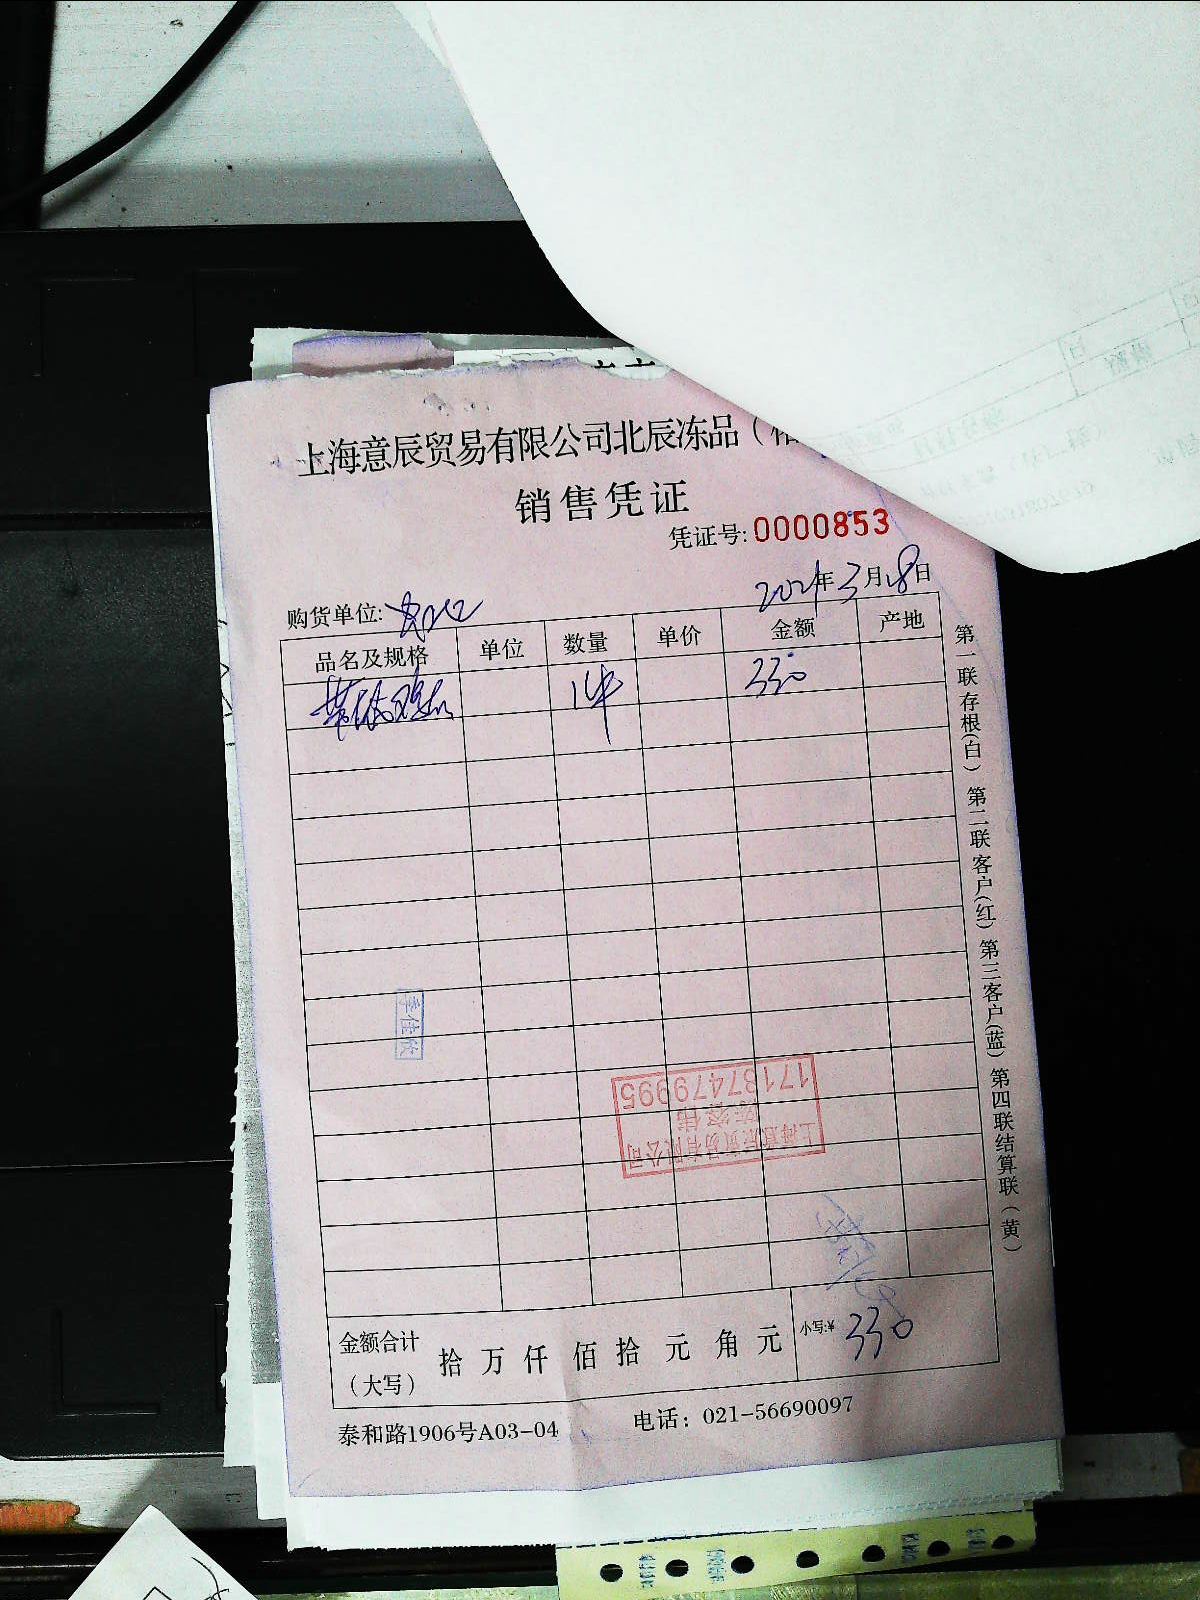 上海意辰贸易有限公司北辰冻品（
销售凭证
凭证号:0000853
2021年3月18日
购货单位:
品名及规格 单位 数量 单价 金额 产地
1件 330
第一联存根(白) 第二联客户(红) 第三客户(蓝) 第四联结算联(黄)
李佳欣
上海意辰贸易有限公司
陈容伟
17187479995
金额合计(大写) 拾 万 仟 佰 拾 元 角 元 小写:¥ 330
泰和路1906号A03-04 电话: 021-56690097